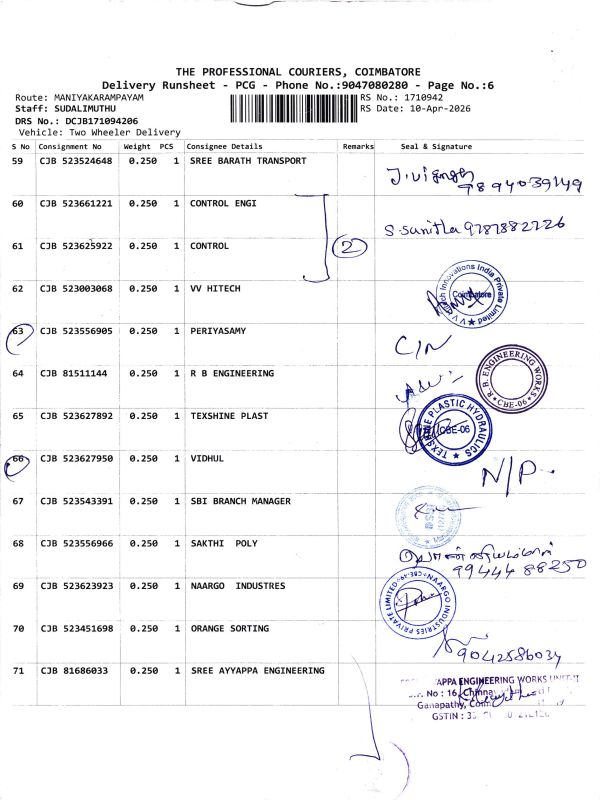 THE PROFESSIONAL COURIERS, COIMBATORE
Delivery Runsheet - PCG - Phone No.:9047080280 - Page No.:6
Route: MANIYAKARAMPAYAM RS No.: 1710942
Staff: SUDALIMUTHU RS Date: 10-Apr-2026
DRS No.: DCJB171094206
Vehicle: Two Wheeler Delivery
S No Consignment No Weight PCS Consignee Details Remarks Seal & Signature
59 CJB 523524648 0.250 1 SREE BARATH TRANSPORT
9894039149
60 CJB 523661221 0.250 1 CONTROL ENGI
S.Sunitha 9787882226
61 CJB 523625922 0.250 1 CONTROL 2
62 CJB 523003068 0.250 1 VV HITECH
Innovations India Private Limited
Coimbatore
63 CJB 523556905 0.250 1 PERIYASAMY
C/N
64 CJB 81511144 0.250 1 R B ENGINEERING
R. B. ENGINEERING WORKS
CBE-06
65 CJB 523627892 0.250 1 TEXSHINE PLAST
TEXSHINE PLASTIC HYDRAULICS
CBE-06
66 CJB 523627950 0.250 1 VIDHUL
N/P
67 CJB 523543391 0.250 1 SBI BRANCH MANAGER
68 CJB 523556966 0.250 1 SAKTHI POLY
99444 88250
69 CJB 523623923 0.250 1 NAARGO INDUSTRES
NAARGO INDUSTRIES PRIVATE LIMITED
CBE-49
70 CJB 523451698 0.250 1 ORANGE SORTING
9042586034
71 CJB 81686033 0.250 1 SREE AYYAPPA ENGINEERING
YAPPA ENGINEERING WORKS UNIT-II
No : 16, Chinna
Ganapathy, Coim
GSTIN : 33